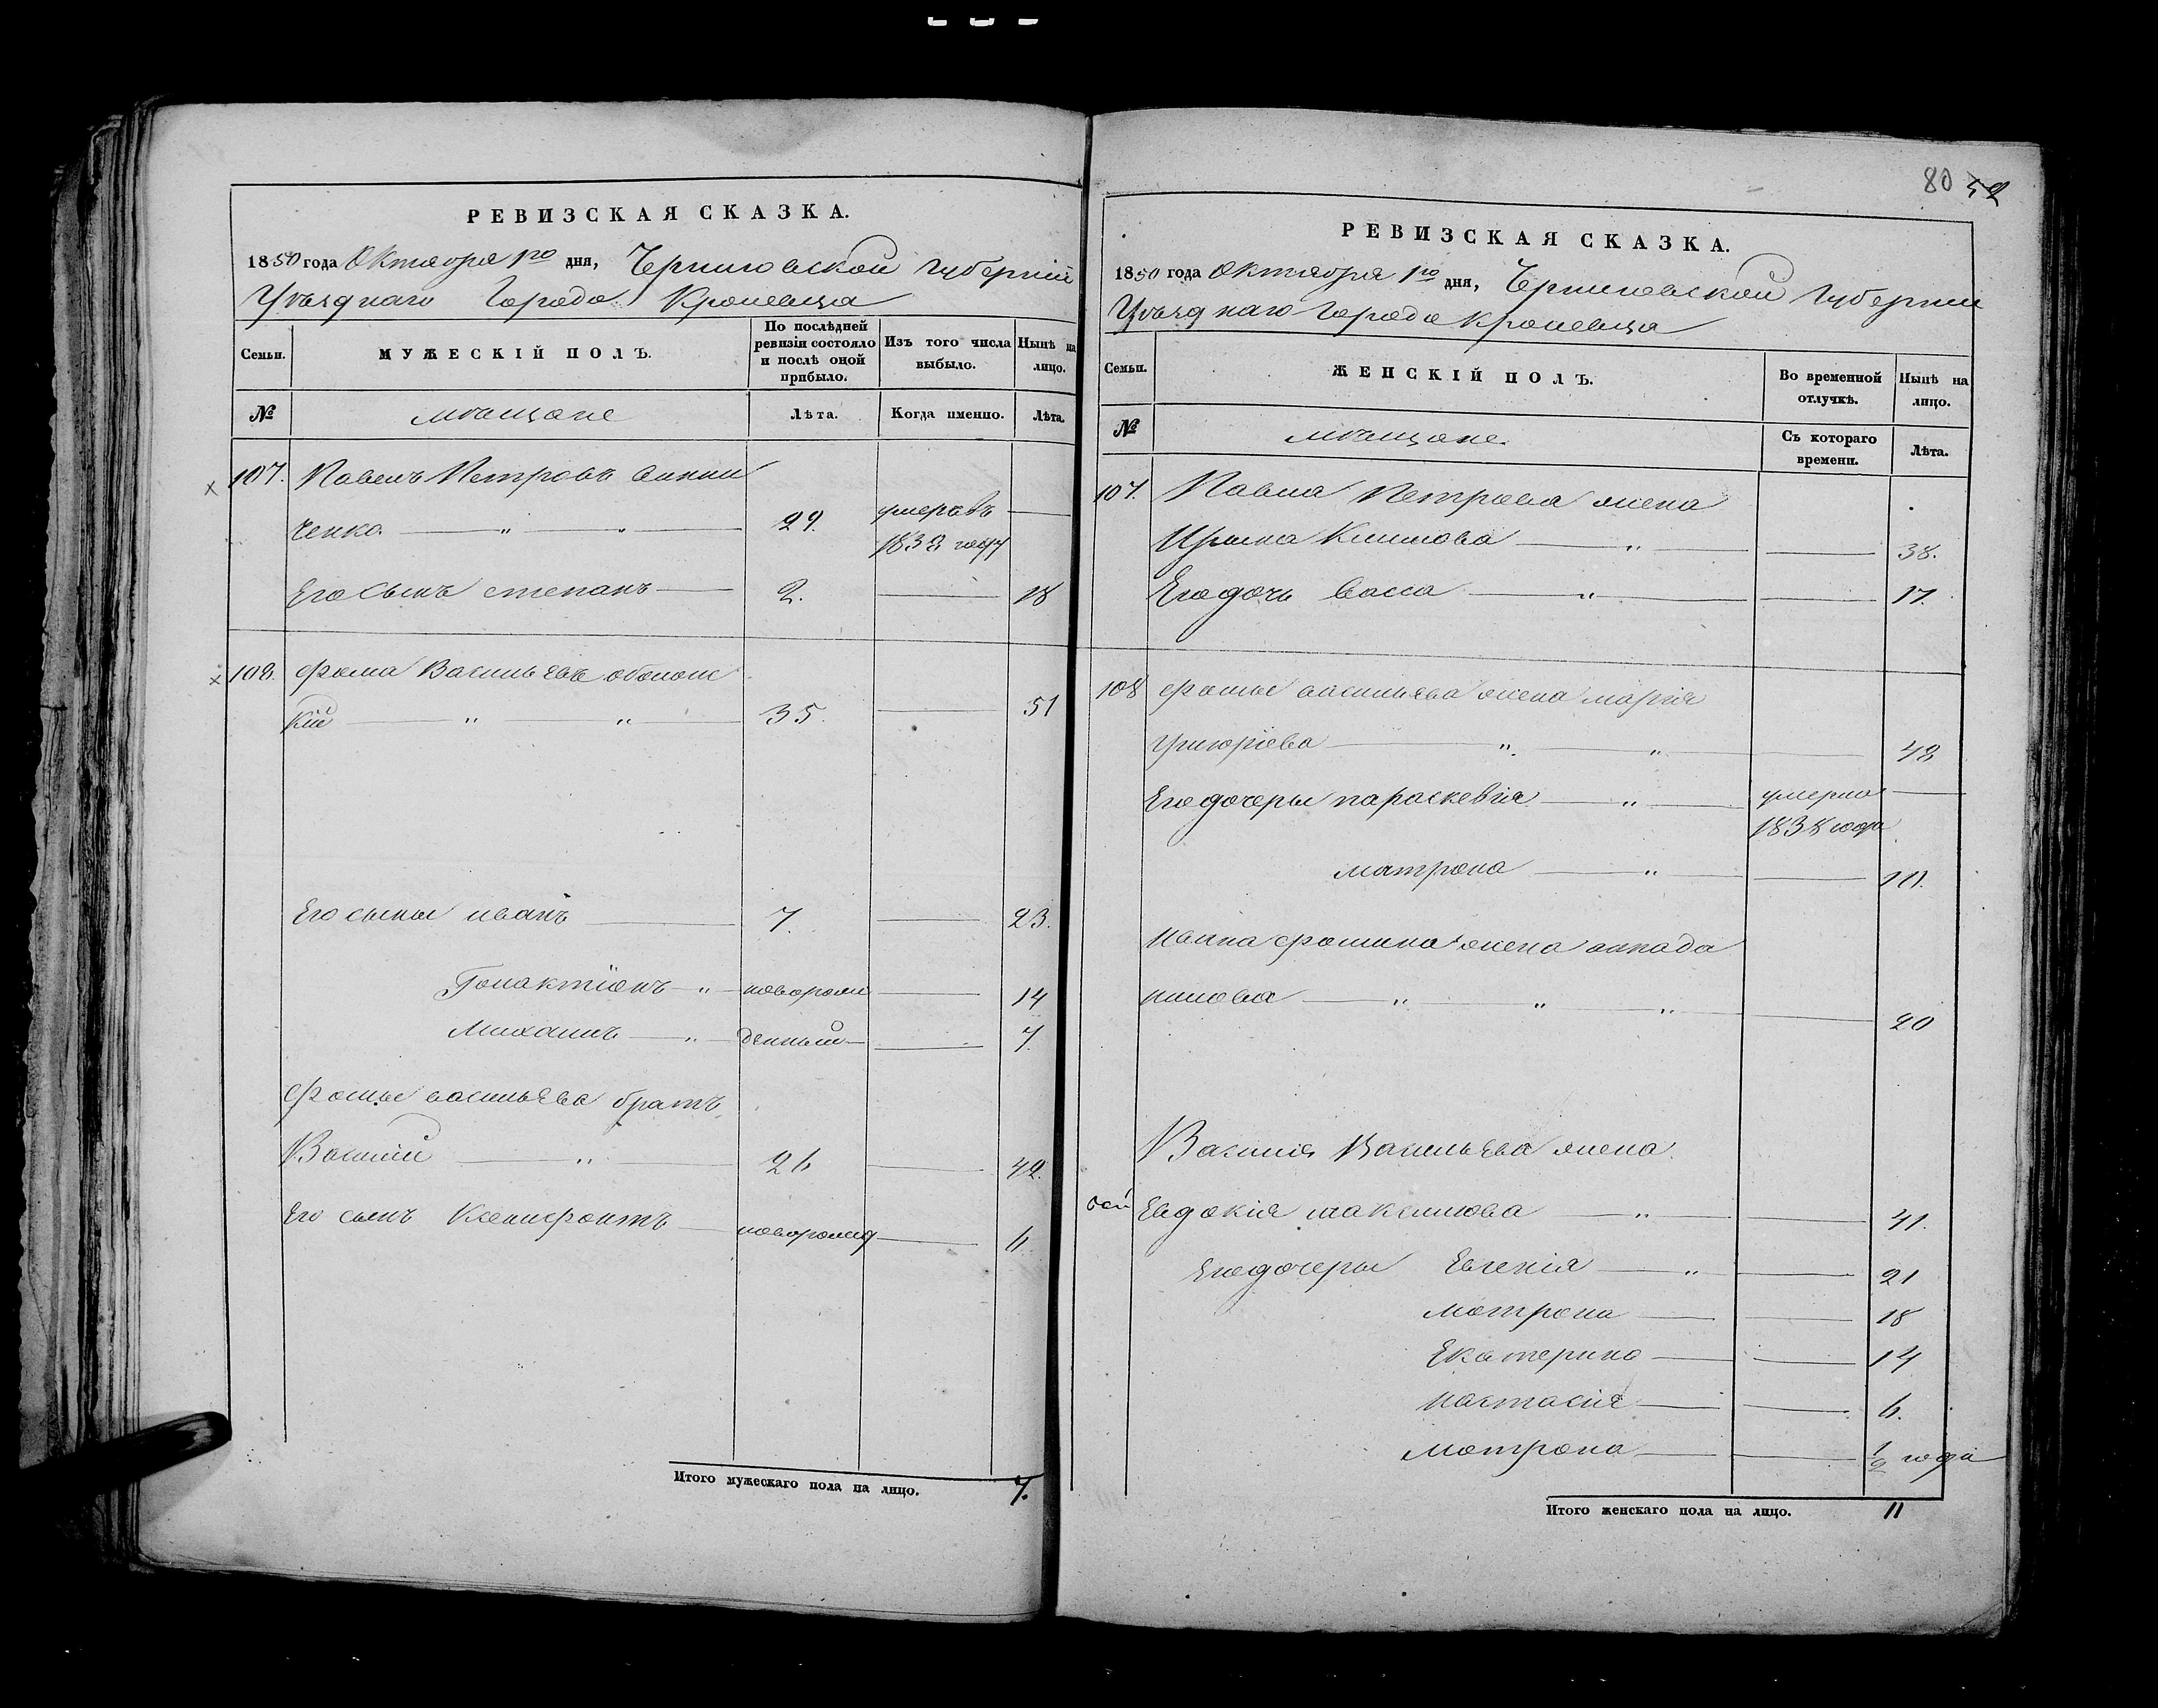 РЕВИЗСКАЯ СКАЗКА.
1850 года Октября 1го дня, Черниговской губерніи
Уѣзднаго Города Кролевца
Семьи.
МУЖЕСКІЙ ПОЛЪ.
По послѣдней ревизіи состояло и послѣ оной прибыло.
Изъ того числа выбыло.
Нынѣ на лицо.
№
мѣщане
Лѣта.
Когда именно.
Лѣта.
107. Павелъ Петровъ Винни
ченко 29. умеръ въ
1838 году
Его Сынъ степанъ 2. 18
108. Фома Васильевъ оболонс
кій 35. 51
Его сыны иванъ 7. 23.
Галактіонъ новорож 14
Михаилъ денный 7.
Фомы васильева братъ
Василій 26 42.
Его сынъ Ксенифонтъ новорожд 6.
Итого мужескаго пола на лицо. 7.
80 52
РЕВИЗСКАЯ СКАЗКА.
1850 года Октября 1го дня, Черниговской Губерніи
Уѣзднаго Города Кролевца
Семьи.
ЖЕНСКІЙ ПОЛЪ.
Во временной отлучкѣ.
Нынѣ на лицо.
№
мѣщане
Съ котораго времени.
Лѣта.
107. Павла Петрова жена
Ирина Климова 38.
Его дочь Васса 17.
108 Фомы васильева жена марія
григоріева 48
Его дочеры параскевія умерла
1838 года
матрона 10.
ивана фомина жена
20
Василія Васильева жена
Евдокія максимова 41.
Его дочеры Евгенія 21
Мотрона 18
Екатерина 14
настасія 6.
Мотрона 1/2 года
Итого женскаго пола на лицо. 11